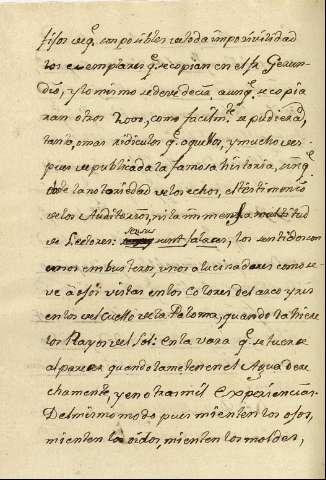 tifos seqᵉ son posibles de toda imposivilidad
los exemplares qᵉ se copian en el fr. Gerun-
dio, y lo mismo se deve decir aunqᵉ se copia
ran otros 2000, como facilmᵗᵉ se pudiera,
tanto, o mas ridiculos qᵉ aquellos, y mucho des-
pues de publicada la famosa historia, sinqᵉ
obste la notoriedad de los echos, el testimonio
de los Auditorios, ni la immensa multitud
de Lectores: sensus sunt falaces, los sentidos son
unos embusteros, unos alucinadores como se
ve a ojos vistas en los Colores del arco yris
en los del Cuello de la Paloma, quando la hiere
los Rayos del Sol: en la vara qᵉ se tuerze
al parecer quando la meten en el Agua dere
chamente, y en otras mil experiencias.
Del mismo modo pues mienten los ojos,
mienten los oidos, mienten los moldes,